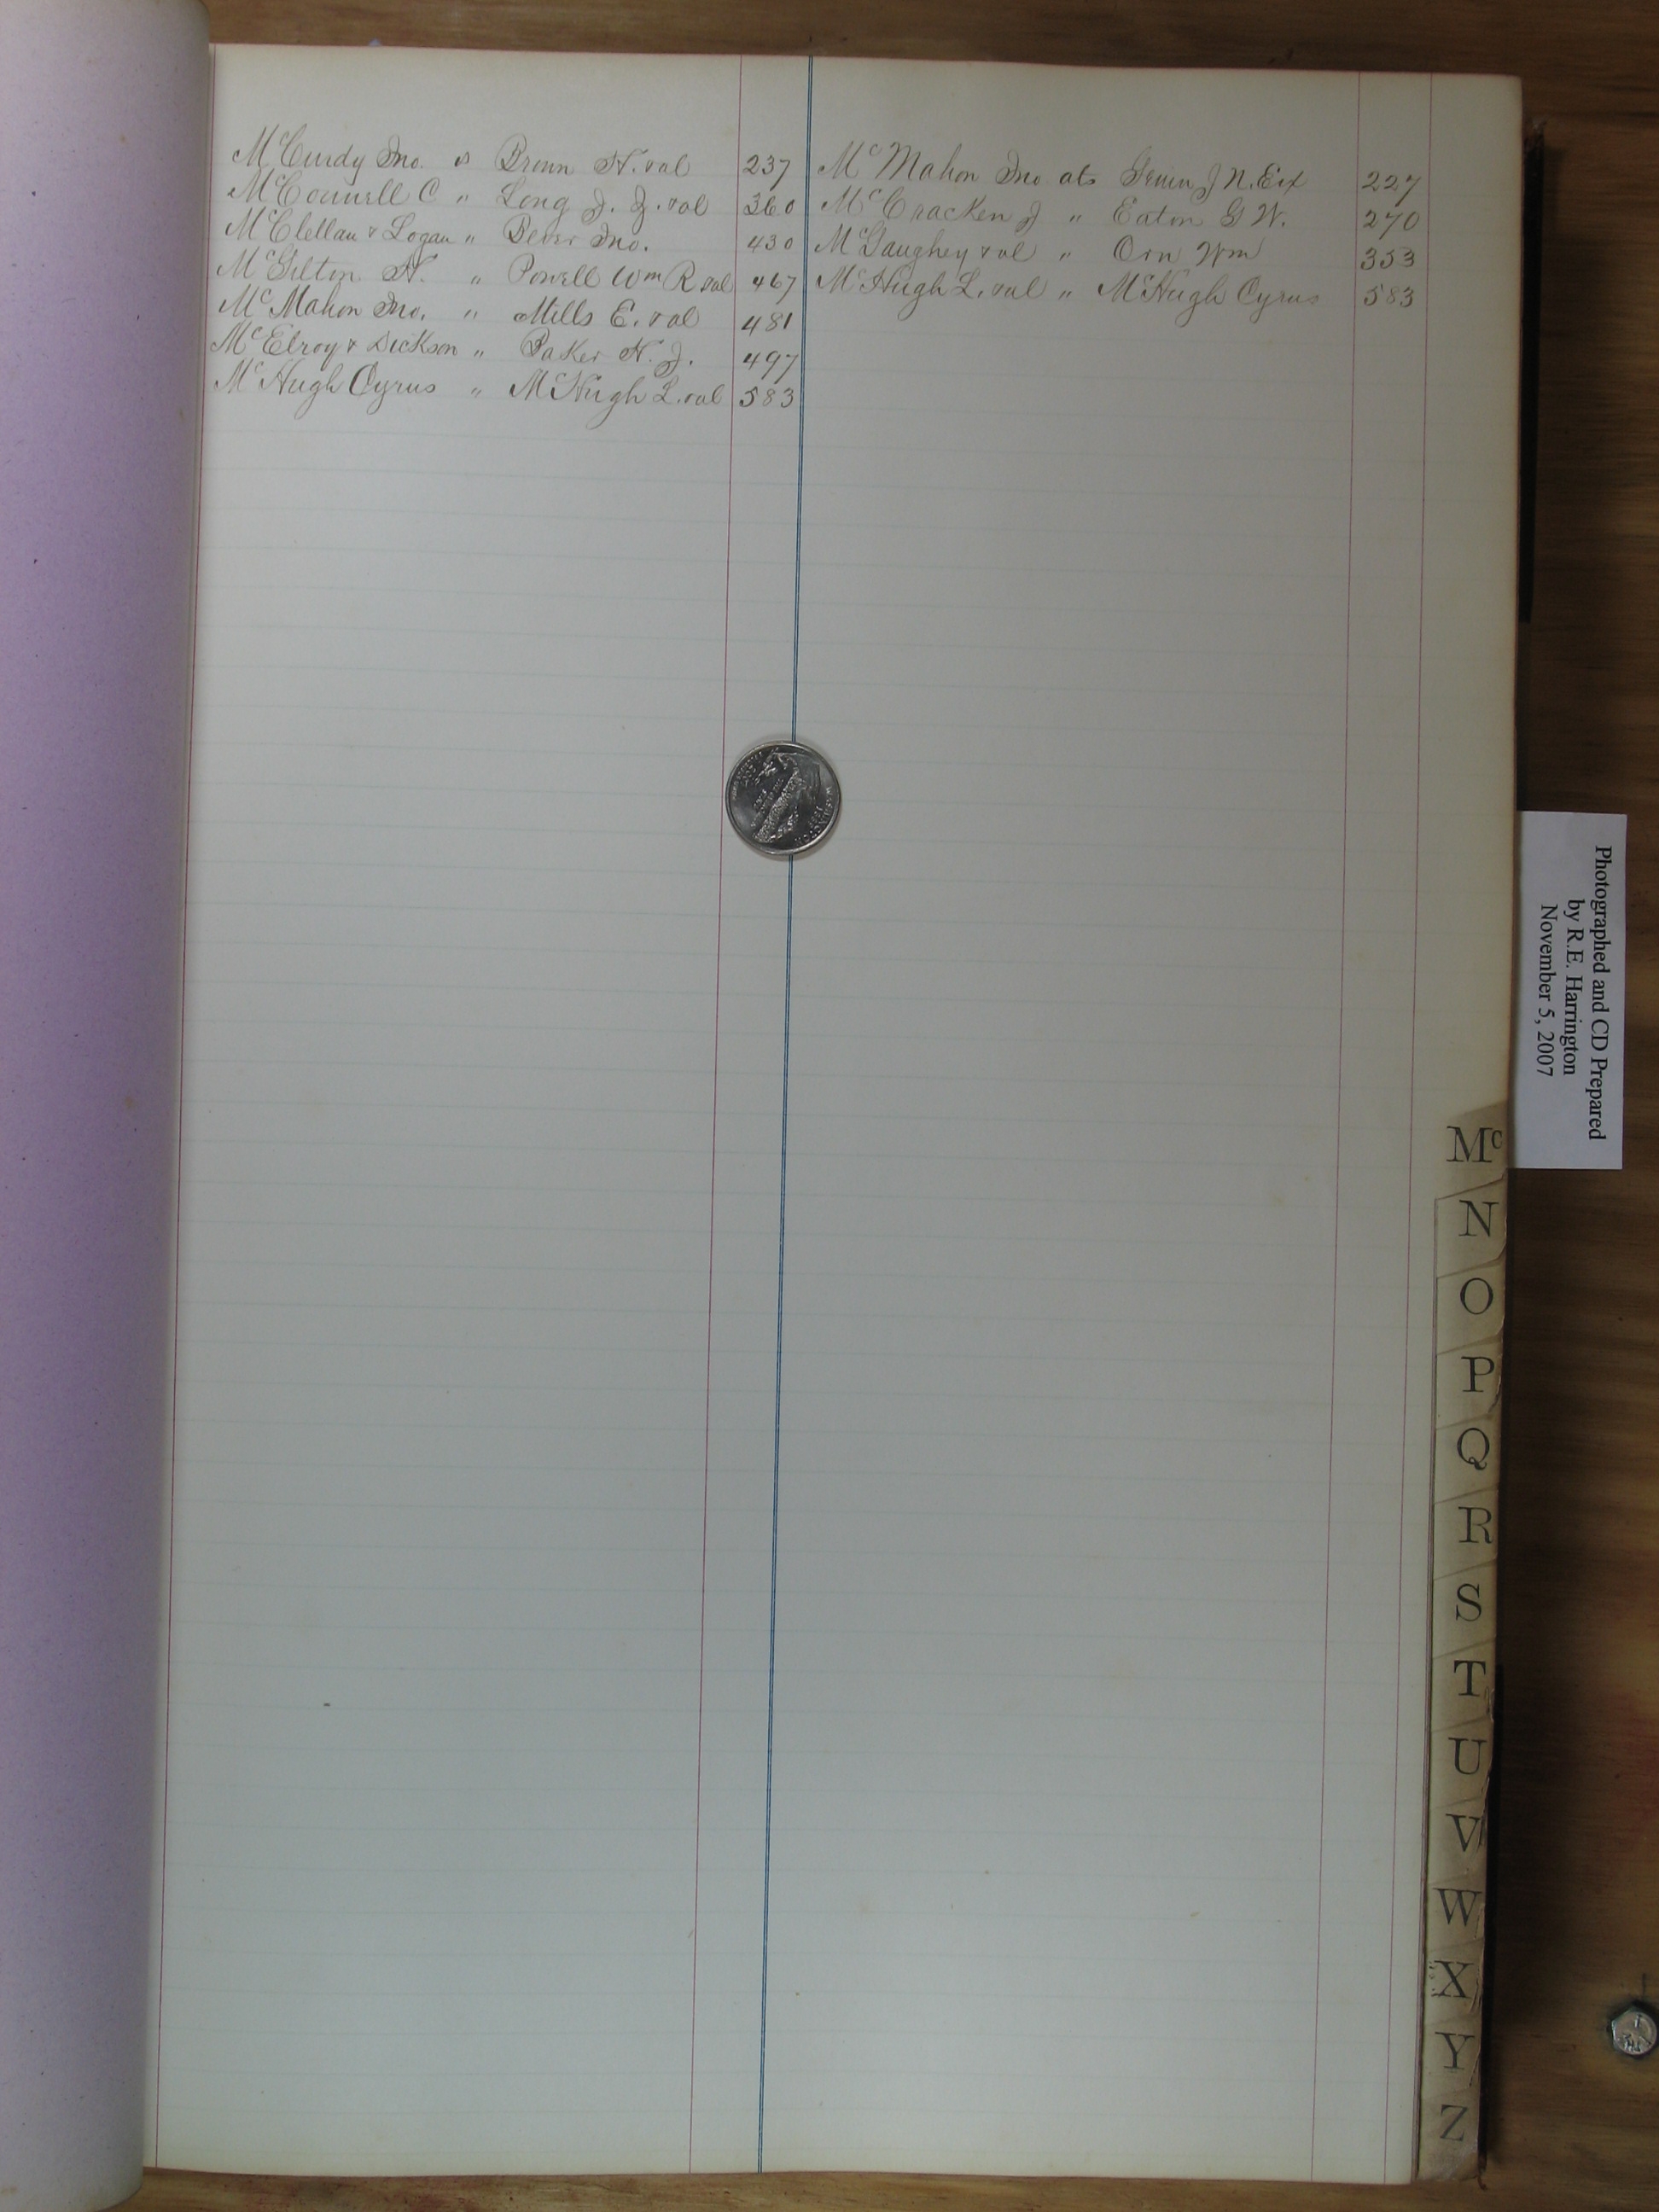 McCurdy Jno. vs Brown H. et al 237
McConnell C " Long J. J. et al 360
McClellan & Logan " Bever Jno. 430
McGilton H. " Powell Wm R et al 467
McMahon Jno. " Mills E. et al 481
McElroy & Dickson " Baker H. J. 497
McHugh Cyrus " McHugh L. et al 583
McMahon Jno ats J N. Eix 227
McCracken J " Eaton G W. 270
McGaughey et al " Orn Wm 353
McHugh L. et al " McHugh Cyrus 583
Photographed and CD Prepared
by R.E. Harrington
November 5, 2007
Mc
N
O
P
Q
R
S
T
U
V
W
X
Y
Z